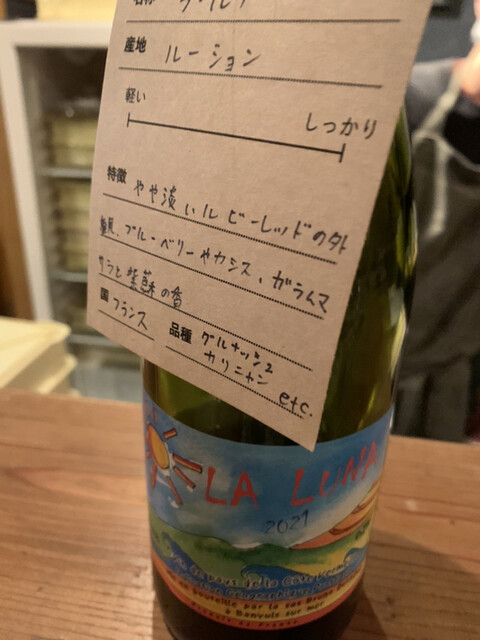 産地 ルーション
軽い
しっかり
特徴 やや淡いルビーレッドの外
観、ブルーベリーやカシス、ガラムマ
サラと紫蘇の香
国 フランス
品種 グルナッシュ
カリニャン
etc.
LA LUNA
2021
à Banyuls sur mer